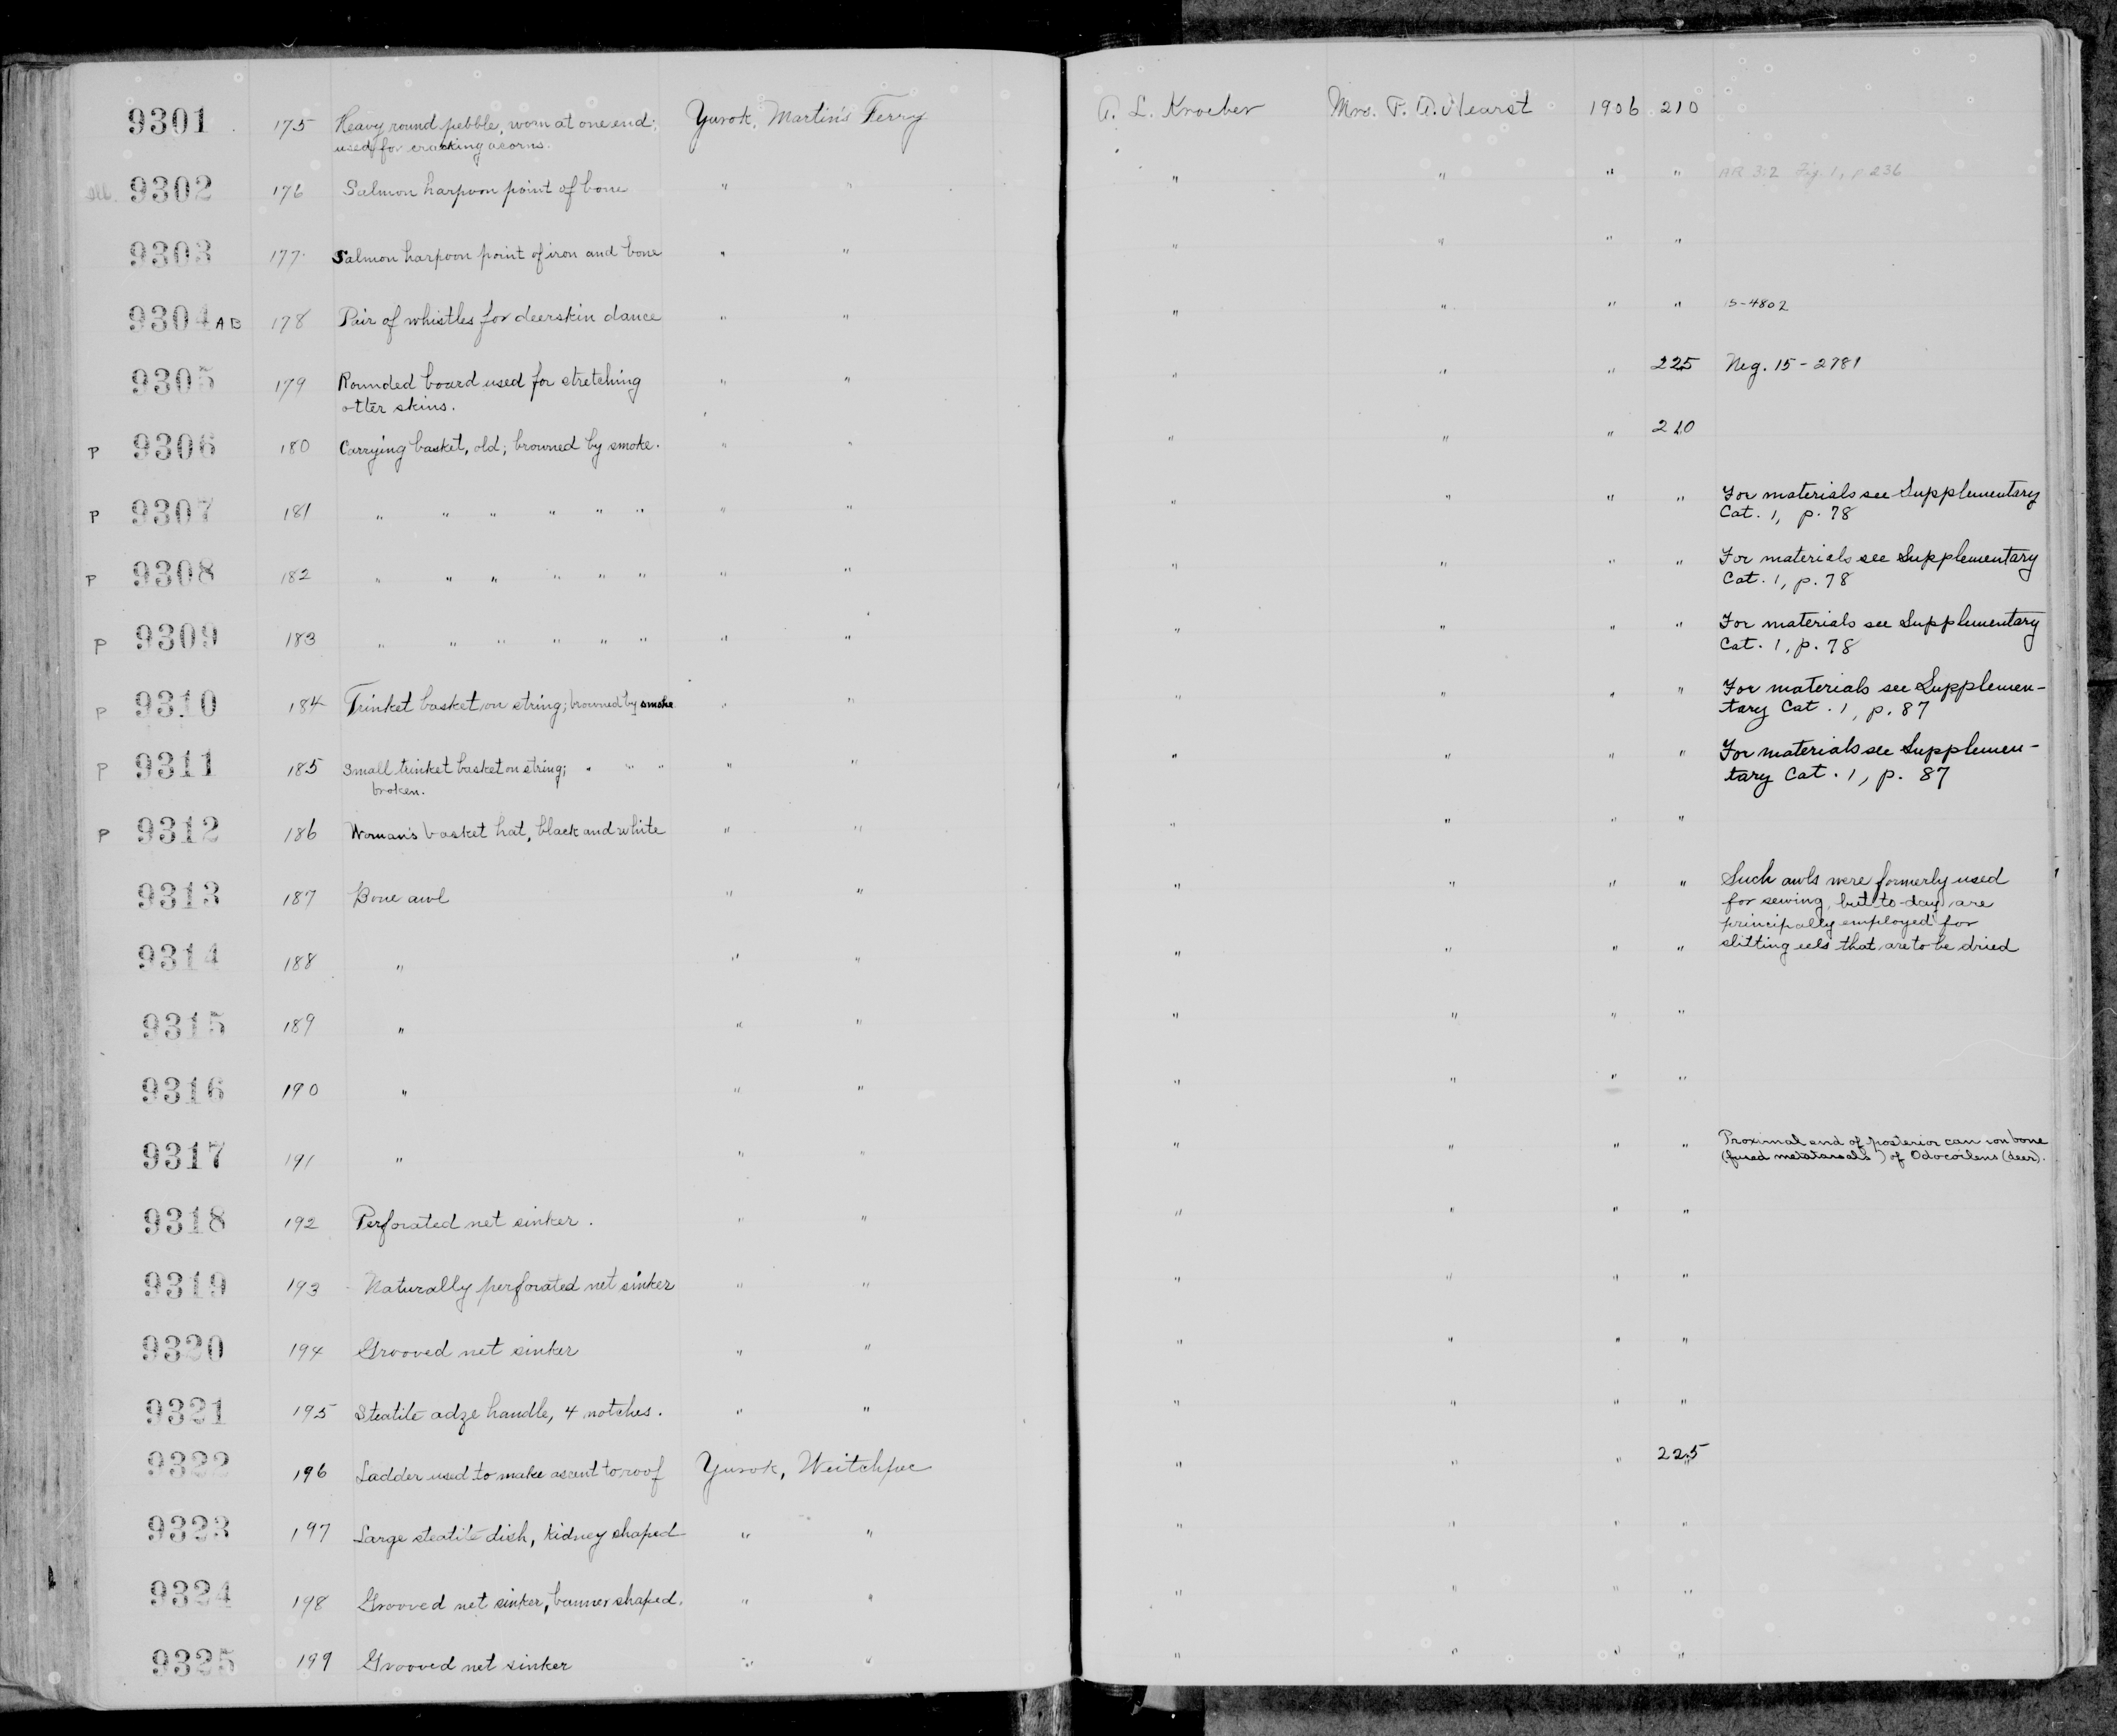 9301 175 Heavy round pebble, worn at one end; Yurok, Martin's Ferry A. L. Kroeber Mrs. P. A. Hearst 1906 210
used for cracking acorns.
Ill. 9302 176 Salmon harpoon point of bone " " " " " " AR 3:2 Fig. 1, p 236
9303 177 Salmon harpoon point of iron and bone " " " " " "
9304 AB 178 Pair of whistles for deerskin dance " " " " " " 15-4802
9305 179 Rounded board used for stretching " " " " " 225 Neg. 15-2781
otter skins.
P 9306 180 Carrying basket, old; browned by smoke. " " " " " 210
P 9307 181 " " " " " " " " " " " " For materials see Supplementary
Cat. 1, p. 78
P 9308 182 " " " " " " " " " " " " For materials see Supplementary
Cat. 1, p. 78
P 9309 183 " " " " " " " " " " " " For materials see Supplementary
Cat. 1, p. 78
P 9310 184 Trinket basket on string; browned by smoke " " " " " " For materials see Supplemen-
tary Cat. 1, p. 87
P 9311 185 Small trinket basket on string; " " " " " " " " " For materials see Supplemen-
broken. tary Cat. 1, p. 87
P 9312 186 Woman's basket hat, black and white " " " " " "
9313 187 Bone awl " " " " " " Such awls were formerly used
for sewing, but to-day are
principally employed for
9314 188 " " " " " " " slitting eels that are to be dried
9315 189 " " " " " " "
9316 190 " " " " " " "
9317 191 " " " " " " " Proximal end of posterior cannon bone
(fused metatarsals) of Odocoileus (deer).
9318 192 Perforated net sinker. " " " " " "
9319 193 Naturally perforated net sinker " " " " " "
9320 194 Grooved net sinker " " " " " "
9321 195 Steatite adze handle, 4 notches. " " " " " "
9322 196 Ladder used to make ascent to roof Yurok, Weitchpec " " " 225
9323 197 Large steatite dish, kidney shaped " " " " " "
9324 198 Grooved net sinker, banner shaped. " " " " " "
9325 199 Grooved net sinker " " " " " "